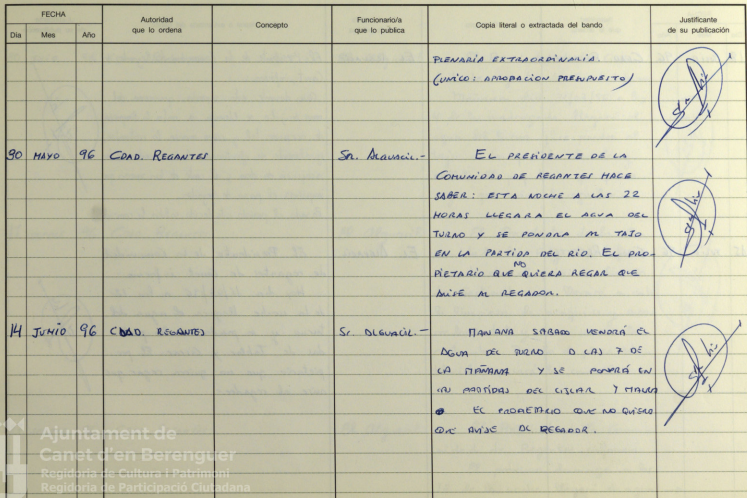 FECHA
Día Mes Año
Autoridad
que lo ordena
Concepto
Funcionario/a
que lo publica
Copia literal o extractada del bando
Justificante
de su publicación
PLENARIA EXTRAORDINARIA.
(UNICO: APROBACION PRESUPUESTO)
30 MAYO 96 CDAD. REGANTES SR. ALGUACIL.- EL PRESIDENTE DE LA
COMUNIDAD DE REGANTES HACE
SABER: ESTA NOCHE A LAS 22
HORAS LLEGARA EL AGUA DEL
TURNO Y SE PONDRA AL TAJO
EN LA PARTIDA DEL RIO. EL PRO-
PIETARIO QUE NO QUIERA REGAR QUE
AVISE AL REGADOR.
14 JUNIO 96 CDAD. REGANTES Sr. ALGUACIL.- MAÑANA SABADO VENDRÁ EL
AGUA DEL TURNO A LAS 7 DE
LA MAÑANA Y SE PONDRÁ EN
PARTIDAS DEL
EL PROPIETARIO QUE NO QUIERA
QUE AVISE AL REGADOR.
Ajuntament de
Canet d'en Berenguer
Regidoria de Cultura i Patrimoni
Regidoria de Participació Ciutadana